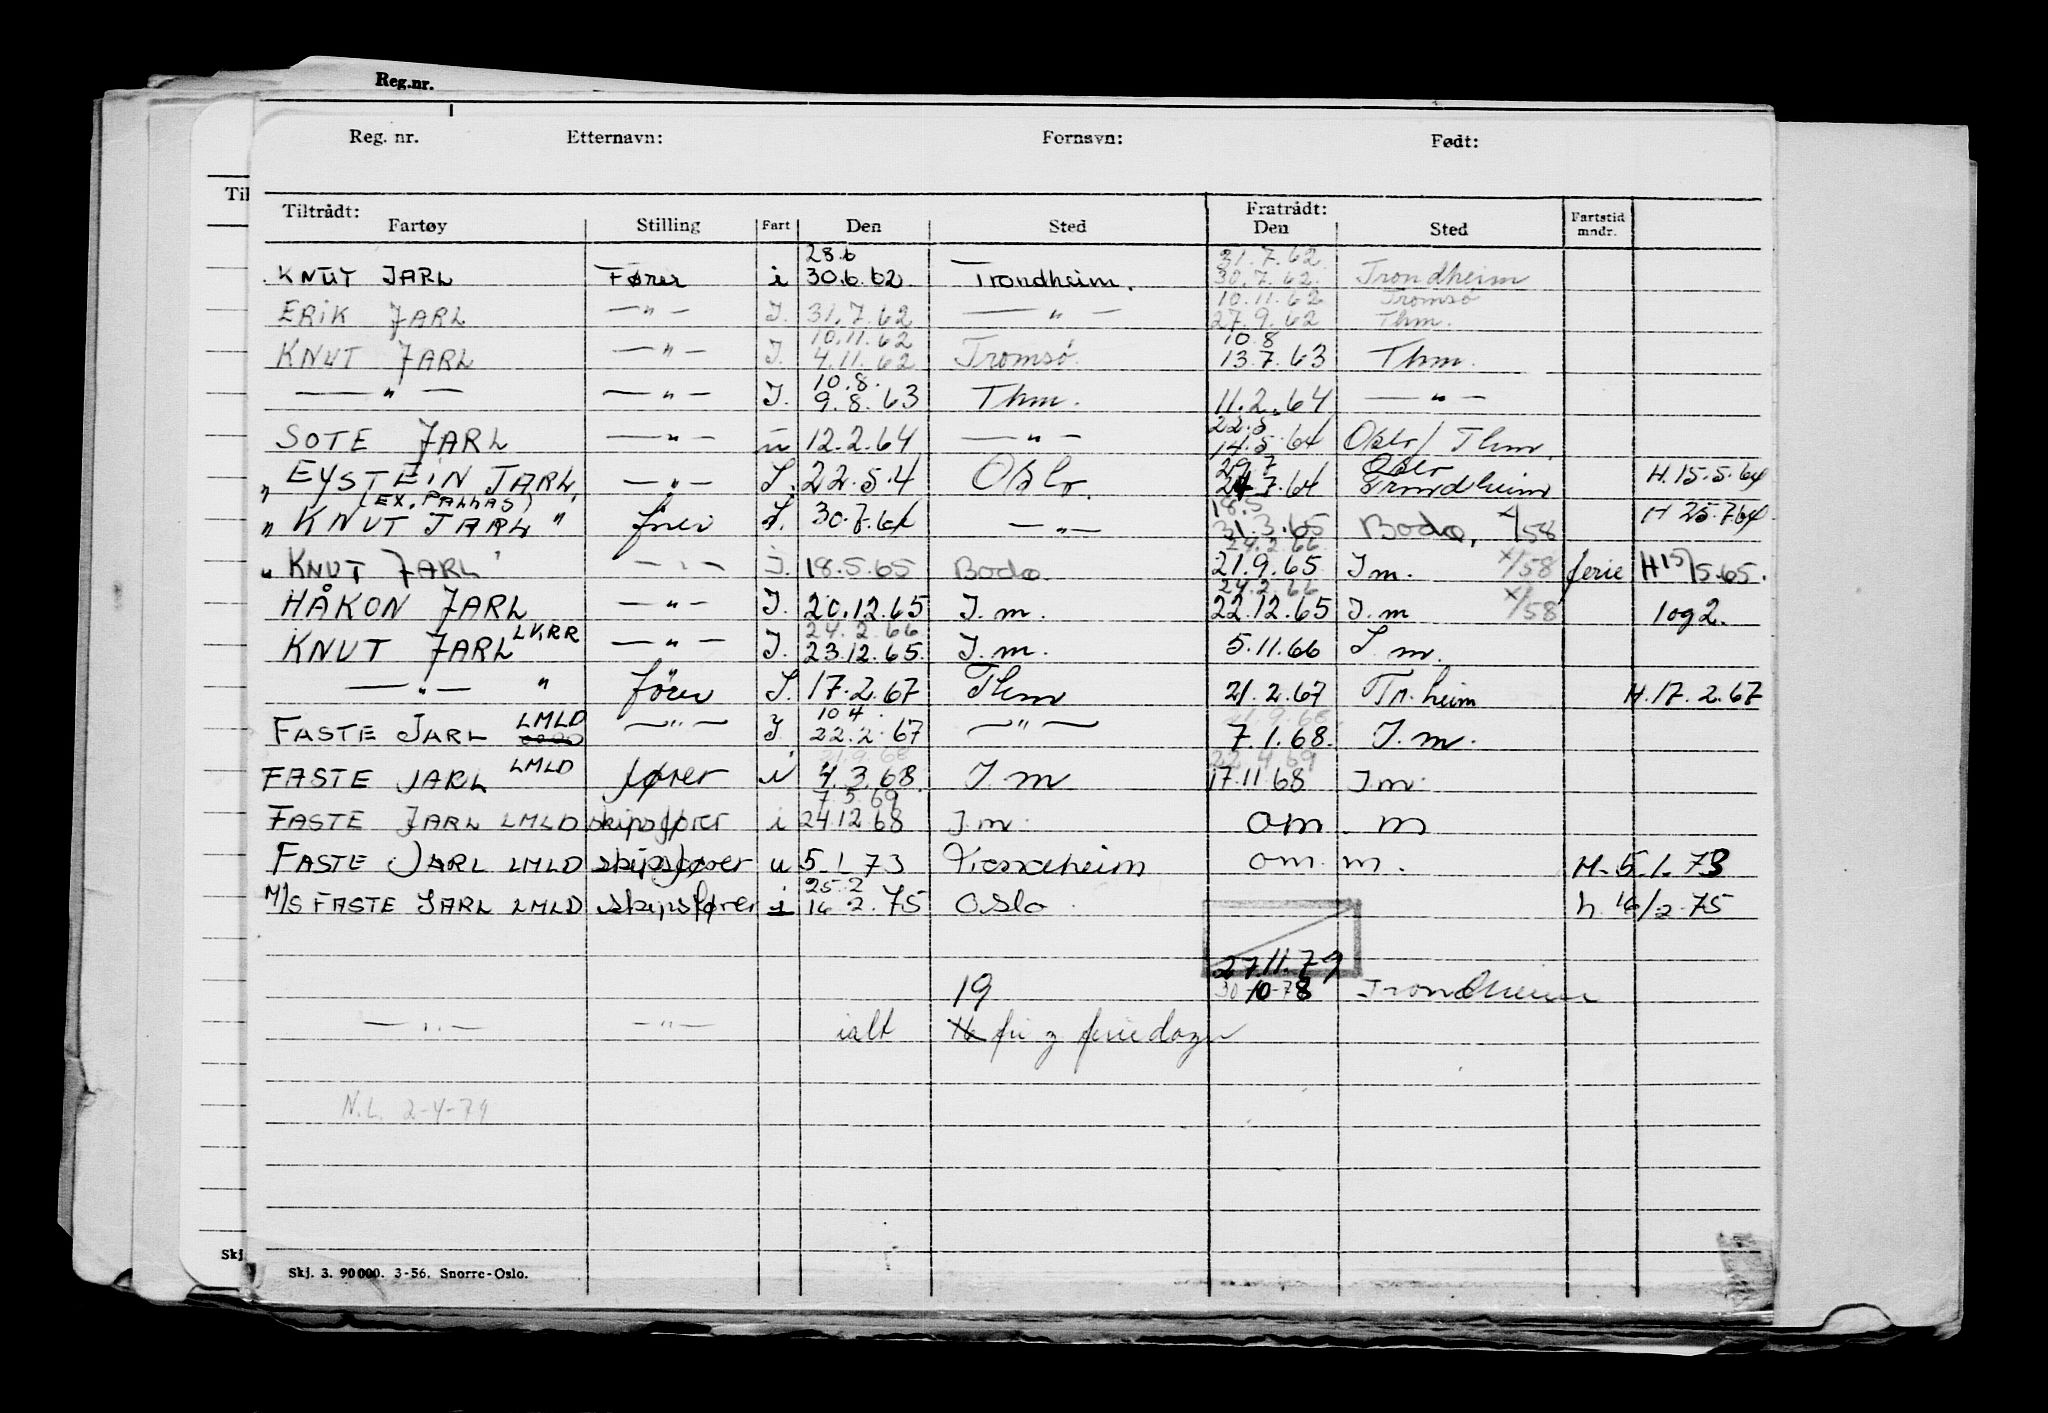 Reg.nr.
Reg. nr. Etternavn: Fornavn: Født:
Til
Tiltrådt: Fratrådt:
Fartøy Stilling Fart Den Sted Den Sted Fartstid mndr.
28.6 31.7.62
KNUT JARL Fører i 30.6.62 Trondheim. 30.7.62 Trondheim
10.11.62 Tromsø
ERIK JARL —"— I. 31.7.62 —"— 27.9.62 Thm.
10.11.62 10.8
KNUT JARL —"— I. 4.11.62 Tromsø. 13.7.63 Thm.
10.8.
—"— —"— I. 9.8.63 Thm. 11.2.64 —"—
22.5
SOTE JARL —"— u 12.2.64 —"— 14.5.64 Oslo/Thm.
29.7 Oslo
"EYSTEIN JARL" —"— I. 22.5.4 Oslo. 24.7.64 Trondheim H.15.5.64
(EX. PALLAS) 18.5
"KNUT JARL" fører I. 30.7.64 —"— 31.3.65 Bodø, x/58 H 25.7.64
24.2.66
"KNUT JARL" —"— I. 18.5.65 Bodø 21.9.65 I m. x/58 ferie H15/5.65.
24.2.66
HÅKON JARL —"— I. 20.12.65 I. m. 22.12.65 I. m x/58 1og2.
24.2.66
KNUT JARL LKRR —"— I. 23.12.65. I. m. 5.11.66 I. m.
—"— " fører I. 17.2.67 Thm 21.2.67 Tr.heim H.17.2.67
10 4 21.9.68.
FASTE JARL LMLD —"— I. 22.2.67 —"— 7.1.68. I. m.
21.9.68 22.4.69
FASTE JARL LMLD fører i 4.3.68 I. m 17.11.68 I m.
7.5.69
FASTE JARL LMLD skipsfører i 24.12.68 I m. om. m
FASTE JARL LMLD skipsfører u 5.1.73 Trondheim om. m. H.5.1.73
25.2
M/S FASTE JARL LMLD skipsfører i 16.2.75 Oslo h. 16/2-75
27.11.79
19 30-10-78 Trondheim
—"— —"— ialt fri og feriedager
N.L. 2-4-79
Skj.
Skj. 3. 90 000. 3-56. Snorre-Oslo.